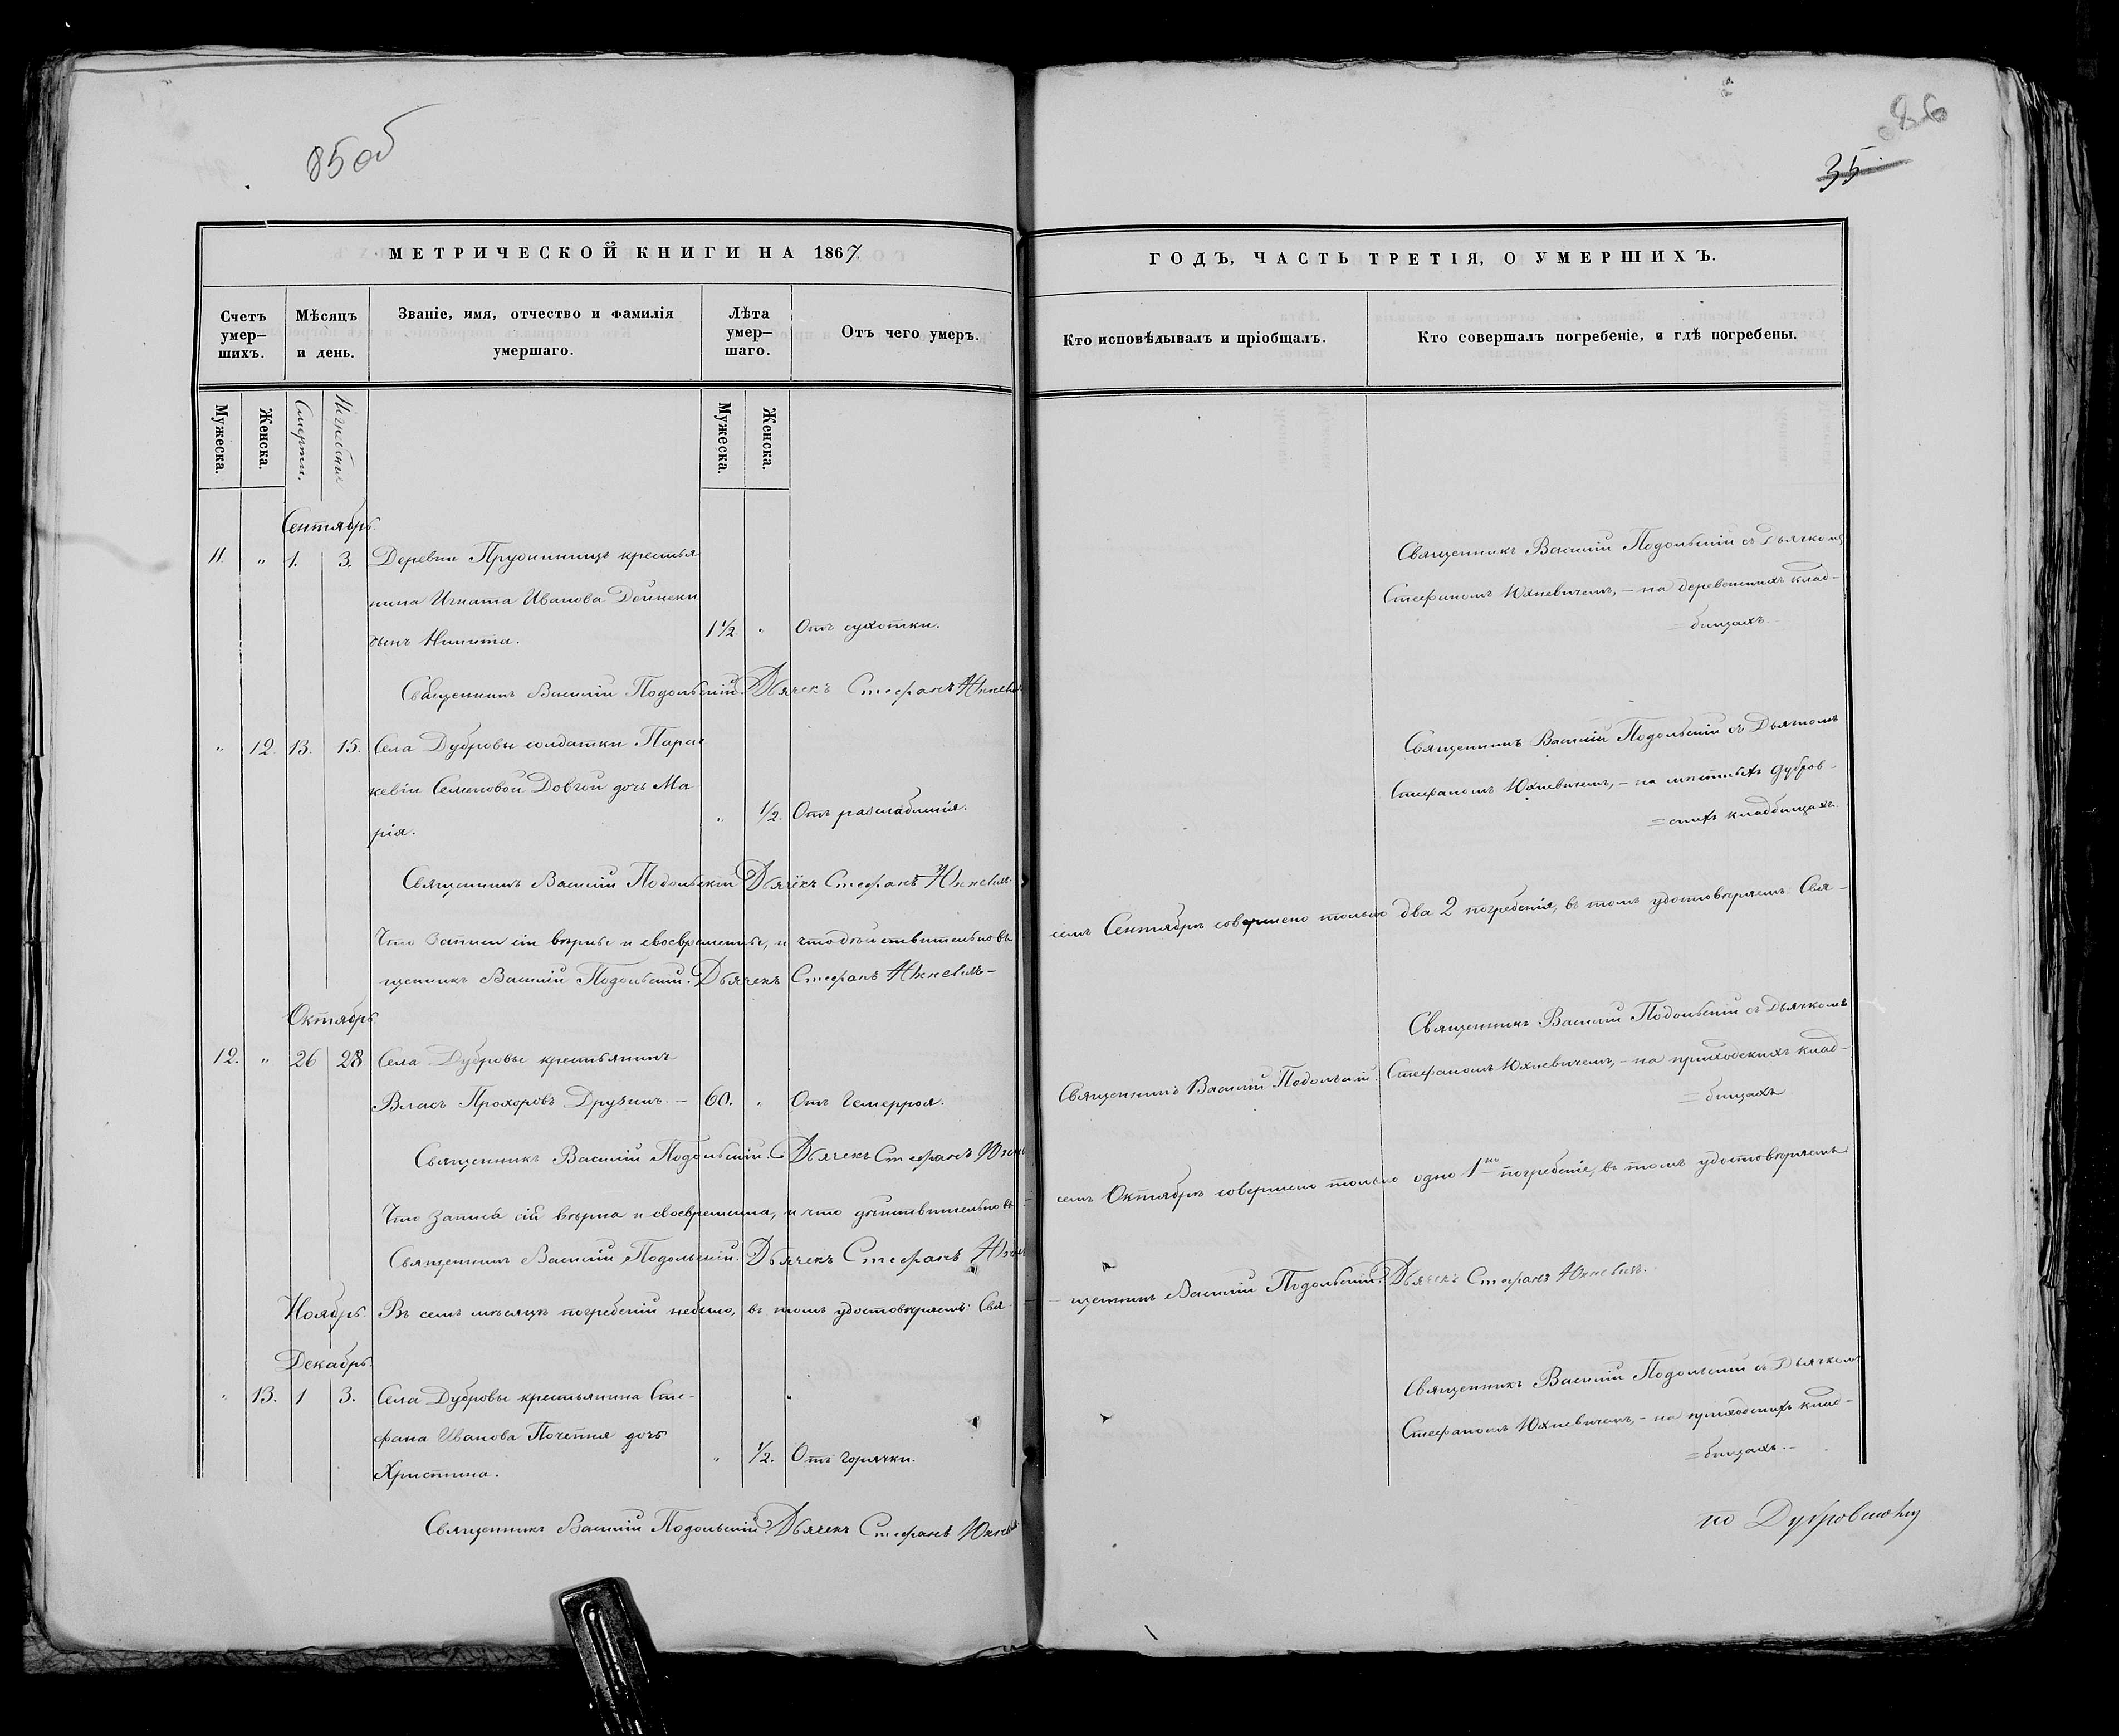 85об
86
35
МЕТРИЧЕСКОЙ КНИГИ НА 1867
ГОДЪ, ЧАСТЬ ТРЕТІЯ, О УМЕРШИХЪ.
Счетъ умер-шихъ.
Мѣсяцъ и день.
Званіе, имя, отчество и фамилія умершаго.
Лѣта умер-шаго.
Отъ чего умеръ.
Кто исповѣдывалъ и пріобщалъ.
Кто совершалъ погребеніе, и гдѣ погребены.
Мужеска.
Женска.
Смерти.
Погребенія
Мужеска.
Женска.
Сентябрь.
11. " 1. 3. Деревни Прудинницъ крестья
нина Игната Иванова
сынъ Никита. 1 1/2 " Отъ сухотки.
Священникъ Василій Подольскій съ Дьячкомъ
Стефаномъ Юхневичемъ, - на деревенскихъ клад-
=бищахъ.
Священникъ Василій Подольскій. Дьячекъ Стефанъ Юхневичъ
" 12. 13. 15. Села Дубровы солдатки Парас
кевіи Семеновой Довгой дочь Ма
рія. " 1/2. Отъ разслабленія.
Священникъ Василій Подольскій съ Дьячкомъ
Стефаномъ Юхневичемъ, - на мѣстныхъ Дубров-
=скихъ кладбищахъ.
Священникъ Василій Подольскій Дьячекъ Стефанъ Юхневичъ.
Что записи сіи вѣрны и своевременны, и что дѣйствительно въ семъ Сентябрѣ совершено только два 2 погребенія, въ томъ удостовѣряемъ: Свя-
щенникъ Василій Подольскій. Дьячекъ Стефанъ Юхневичъ-
Октябрь
12. " 26 28 Села Дубровы крестьянинъ
Власъ Прохоровъ Друзикъ. - 60. " Отъ гемерроя.
Священникъ Василій Подольскій.
Священникъ Василій Подольскій съ Дьячкомъ
Стефаномъ Юхневичемъ, - на приходскихъ клад-
=бищахъ
Священникъ Василій Подольскій. Дьячекъ Стефанъ Юхневичъ
Что запись сія вѣрна и своевременна, и что дѣйствительно въ семъ Октябрѣ совершено только одно 1но погребеніе, въ томъ удостовѣряемъ
Священникъ Василій Подольскій. Дьячекъ Стефанъ Юхневичъ
Ноябрь. Въ семъ мѣсяцѣ погребеній небыло, въ томъ удостовѣряемъ: Свя-
щенникъ Василій Подольскій. Дьячекъ Стефанъ Юхневичъ.
Декабрь.
" 13. 1 3. Села Дубровы крестьянина Сте-
фана Иванова дочь
Христина. " 1/2. Отъ горячки.
Священникъ Василій Подольскій съ Дьячкомъ
Стефаномъ Юхневичемъ, - на приходскихъ клад-
=бищахъ.-
Священникъ Василій Подольскій. Дьячекъ Стефанъ Юхневичъ.
по Дубровскому